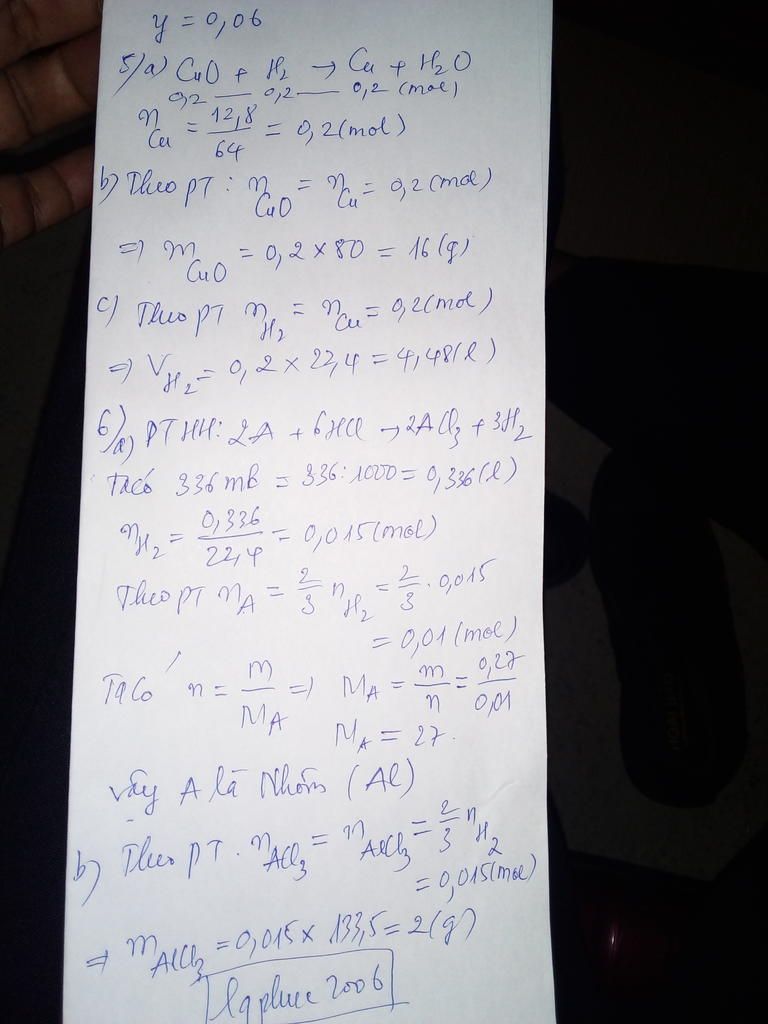 y = 0,06
5/a) CuO + H2 → Cu + H2O
0,2 — 0,2 — 0,2 (mol)
nCu = 12,8/64 = 0,2 (mol)
b) Theo pT: nCuO = nCu = 0,2 (mol)
=> mCuO = 0,2 × 80 = 16 (g)
c) Theo pT nH2 = nCu = 0,2 (mol)
=> VH2 = 0,2 × 22,4 = 4,48 (l)
6/a) PTHH: 2A + 6HCl → 2ACl3 + 3H2
Ta có 336 ml = 336:1000 = 0,336 (l)
nH2 = 0,336/22,4 = 0,015 (mol)
Theo pT nA = 2/3 nH2 = 2/3 . 0,015
= 0,01 (mol)
Ta có n = m/MA => MA = m/n = 0,27/0,01
MA = 27.
Vậy A là Nhôm (Al)
b) Theo pT. nACl3 = nAlCl3 = 2/3 nH2
= 0,015 (mol)
=> mAlCl3 = 0,015 × 133,5 = 2 (g)
2006